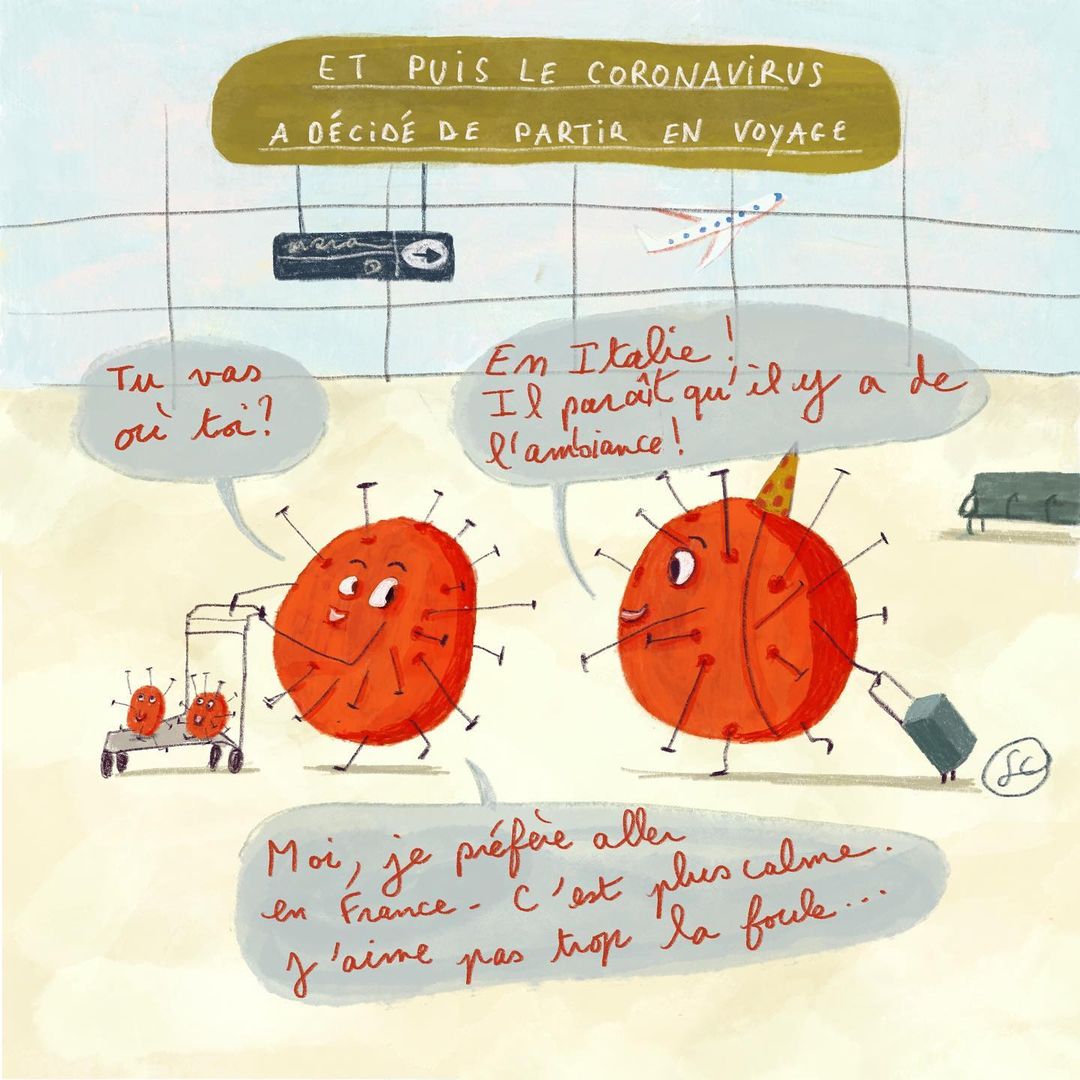 ET PUIS LE CORONAVIRUS
A DÉCIDÉ DE PARTIR EN VOYAGE
Tu vas
où toi?
En Italie !
Il paraît qu'il y a de
l'ambiance !
Moi, je préfère aller
en France. C'est plus calme.
J'aime pas trop la foule...